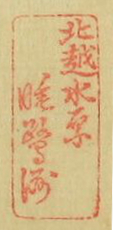 北越水原
睡鷺洲